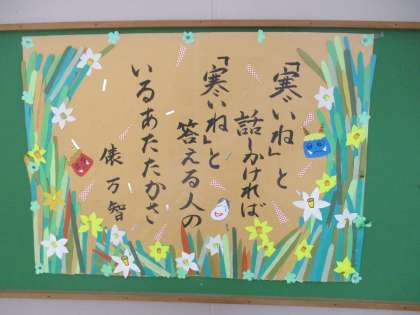 「寒いね」と
話しかければ
「寒いね」と
答える人の
いるあたたかさ
俵万智